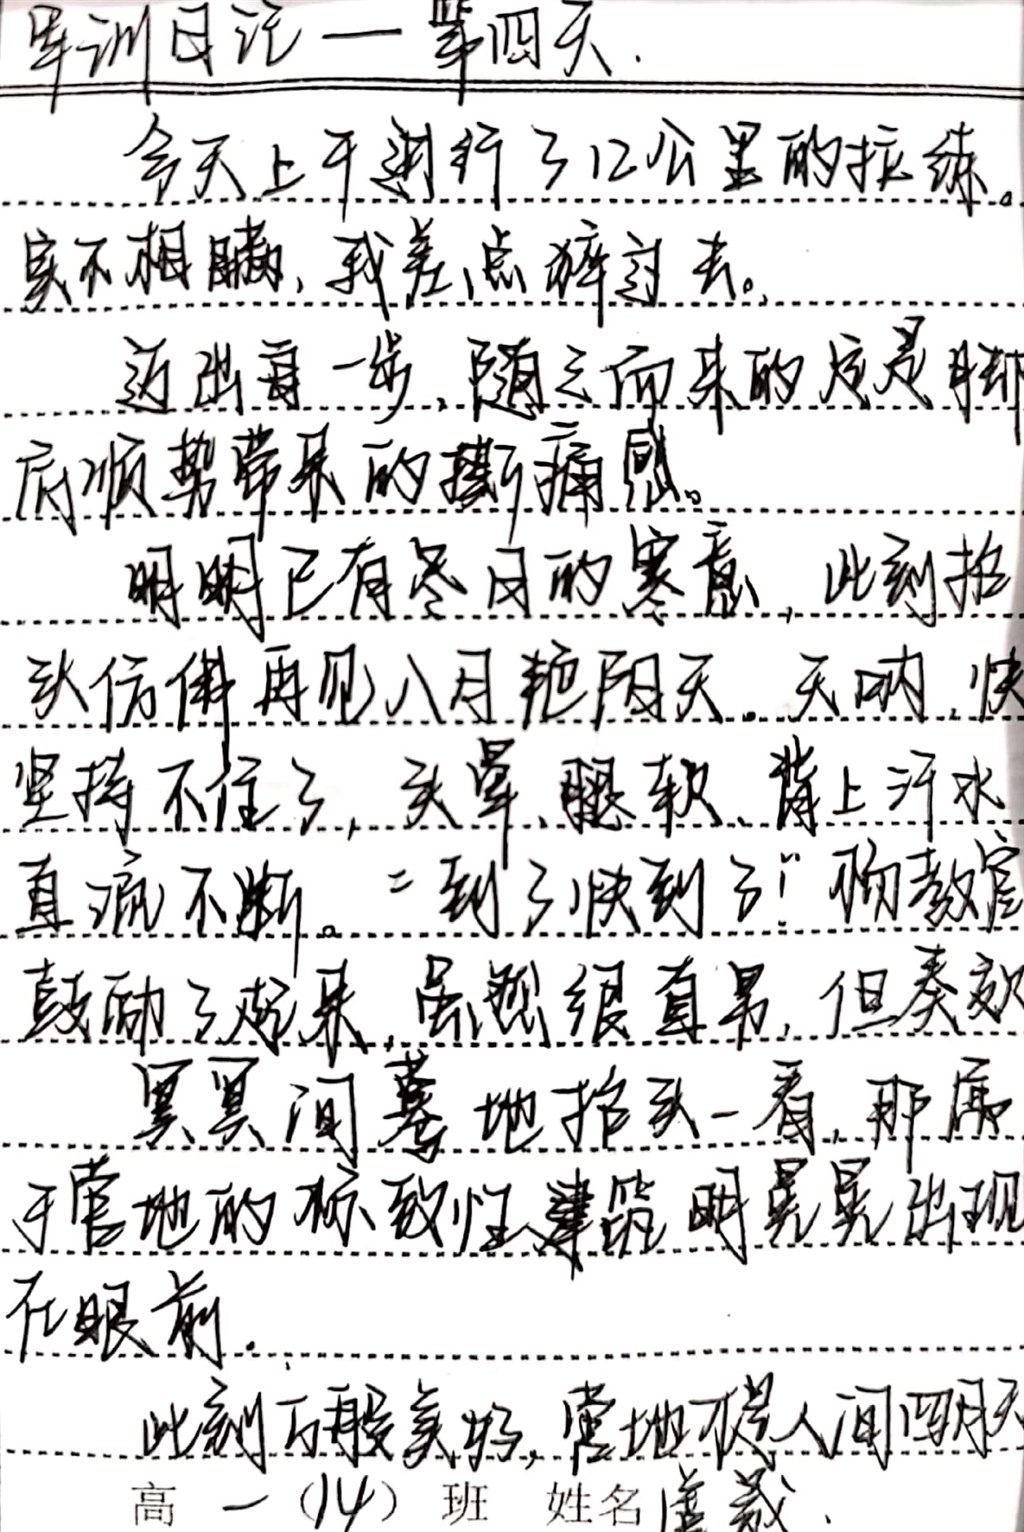 军训日记—第四天.
今天上午进行了12公里的拉练。
实不相瞒,我差点猝过去。
迈出每一步,随之而来的总是脚
底顺势带来的撕痛感。
明明已有冬日的寒意,此刻抬
头仿佛再见八月艳阳天。天呐,快
坚持不住了,头晕、腿软、背上汗水
直流不断。“到了快到了!”杨教官
鼓励了起来,虽然很直男,但奏效
冥冥间蓦地抬头一看,那属
于营地的标致性建筑明晃晃出现
在眼前.
此刻万般美好,营地不是人间四月天
高一(14)班 姓名